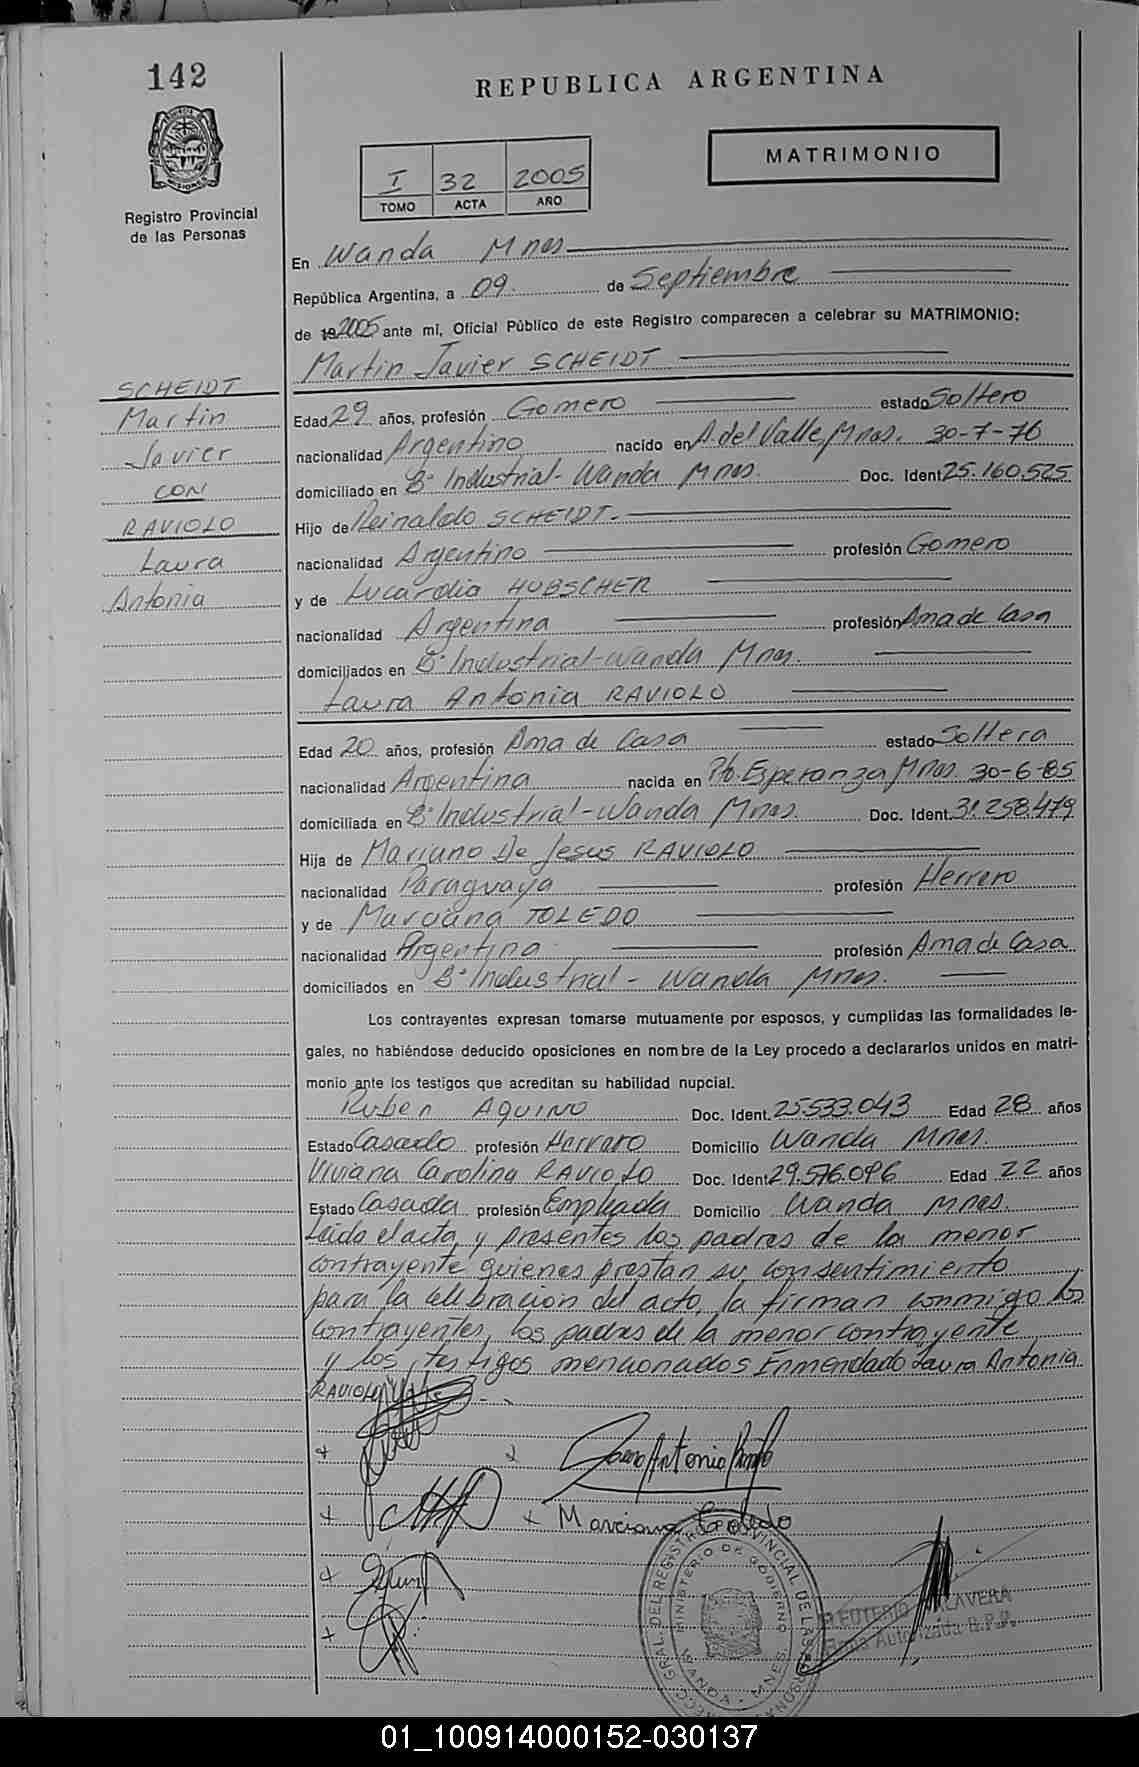 142
REPUBLICA ARGENTINA
I 32 2005
TOMO ACTA AÑO
MATRIMONIO
Registro Provincial
de las Personas
En Wanda Mnes
República Argentina, a 09. de Septiembre
de 192005 ante mi, Oficial Público de este Registro comparecen a celebrar su MATRIMONIO:
Martin Javier SCHEIDT
SCHEIDT
Martin
Javier
CON
RAVIOLO
Laura
Antonia
Edad 29 años, profesión Gomero estado Soltero
nacionalidad Argentino nacido en A. del Valle, Mnes. 30-7-76
domiciliado en B° Industrial - Wanda Mnes. Doc. Ident 25.160.525
Hijo de Reinaldo SCHEIDT.
nacionalidad Argentino profesión Gomero
y de Lucardia HUBSCHER
nacionalidad Argentina profesión Ama de Casa
domiciliados en B° Industrial - Wanda Mnes.
Laura Antonia RAVIOLO
Edad 20 años, profesión Ama de Casa estado Soltera
nacionalidad Argentina nacida en Pto. Esperanza Mnes 30-6-85
domiciliada en B° Industrial - Wanda Mnes. Doc. Ident. 31.258.479
Hija de Mariano De Jesus RAVIOLO
nacionalidad Paraguaya profesión Herrero
y de Marciana TOLEDO
nacionalidad Argentina profesión Ama de Casa
domiciliados en B° Industrial - Wanda Mnes.
Los contrayentes expresan tomarse mutuamente por esposos, y cumplidas las formalidades le-
gales, no habiéndose deducido oposiciones en nombre de la Ley procedo a declararlos unidos en matri-
monio ante los testigos que acreditan su habilidad nupcial.
Ruben AQUINO Doc. Ident. 25.533.043 Edad 28 años
Estado Casado profesión Herrero Domicilio Wanda Mnes.
Viviana Carolina RAVIOLO Doc. Ident 29.576.096 Edad 22 años
Estado Casada profesión Empleada Domicilio Wanda Mnes.
Leido el acta, y presentes los padres de la menor
contrayente quienes prestan su consentimiento
para la celebracion del acto, la firman conmigo los
contrayentes, los padres de la menor contrayente
y los testigos mencionados Enmendado Laura Antonia
RAVIOLO
Laura Antonia
Marciana Toledo
MINISTERIO DE GOBIERNO
WANDA - MNES
01_100914000152-030137